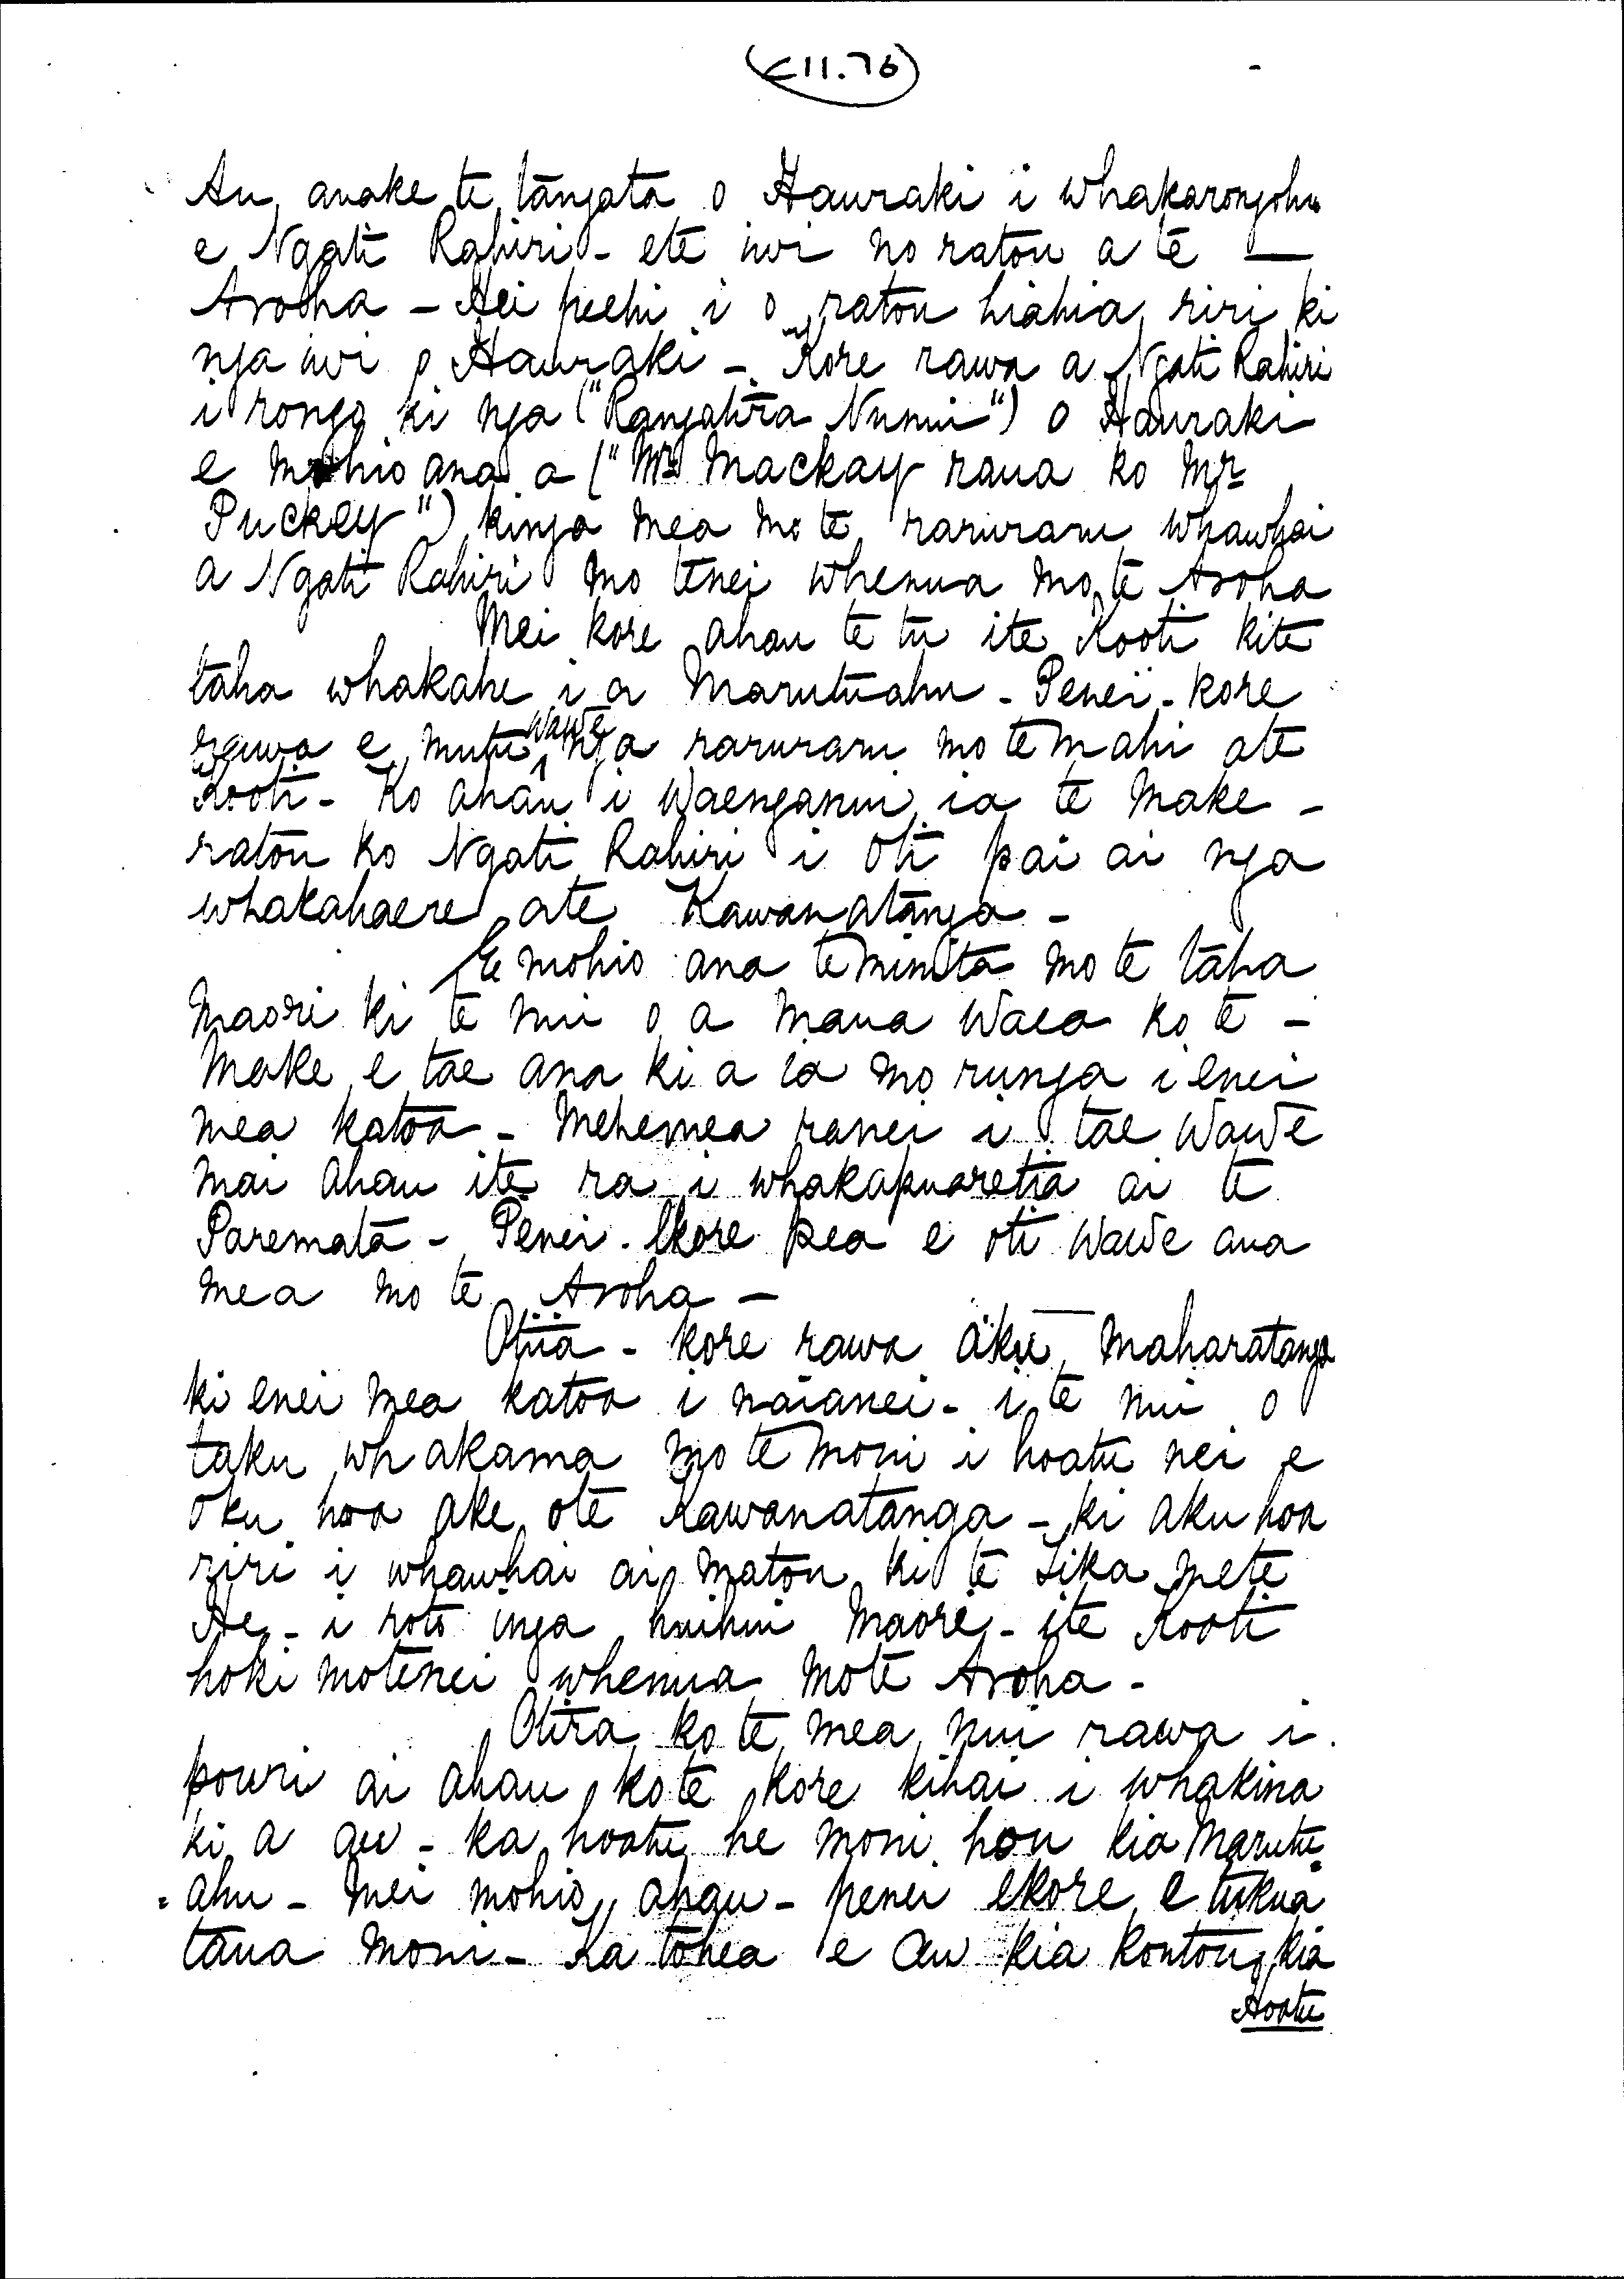 (E11.76)
Au anake te tangata o Hauraki i whakarongohu
e Ngati Rahiri - ete iwi no ratou a te —
Aroha - Hei peehi i o ratou hiahia riri ki
nga iwi o Hauraki - Kore rawa a Ngati Rahiri
i rongo ki nga ("Rangatira Nunui") o Hauraki
e mohio ana a ("Mr Mackay raua ko Mr
Puckey") kinga mea mo te raruraru whawhai
a Ngati Rahiri mo tenei whenua mo te Aroha
Mei kore ahau te tu ite Kooti kite
taha whakahe i a Marutuahu - Penei - kore
rawa e mutu wawe nga raruraru mo te mahi ate
Kooti - Ko ahau i waenganui ia te Make -
ratou ko Ngati Rahiri i oti pai ai nga
whakahaere ate Kawanatanga -
E mohio ana te minita mo te taha
Maori ki te nui o a maua waea ko te -
Make e tae ana ki a ia mo runga i enei
mea katoa - Mehemea ranei i tae wawe
mai ahau ite ra i whakapuaretia ai te
Paremata - Penei - Ekore pea e oti wawe aua
mea mo te Aroha -
Otiia - kore rawa aku maharatanga
ki enei mea katoa i naianei - i te nui o
taku whakama mo te moni i hoatu nei e
oku hoa ake ote Kawanatanga - ki aku hoa
riri i whawhai ai matou ki te Tika mete
He - i roto inga huihui Maori - ite Kooti
hoki motenei whenua mote Aroha -
Otira ko te mea nui rawa i
pouri ai ahau kote kore kihai i whakina
ki a au - ka hoatu he moni hou kia Marutu
=ahu - Mei mohio ahau - penei ekore e tukua
taua moni - Ka tohea e au kia koutou, kia
Hoatu